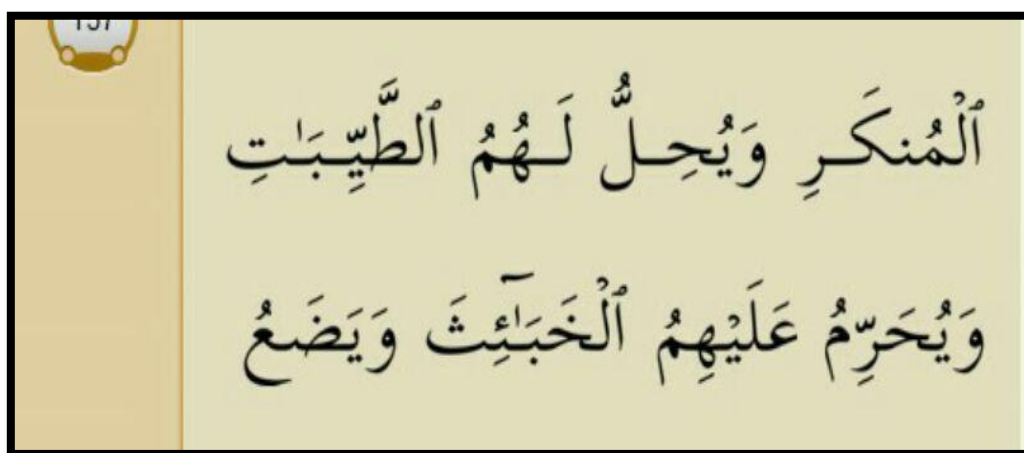 157
ٱلْمُنكَرِ وَيُحِلُّ لَهُمُ ٱلطَّيِّبَـٰتِ
وَيُحَرِّمُ عَلَيْهِمُ ٱلْخَبَـٰٓئِثَ وَيَضَعُ